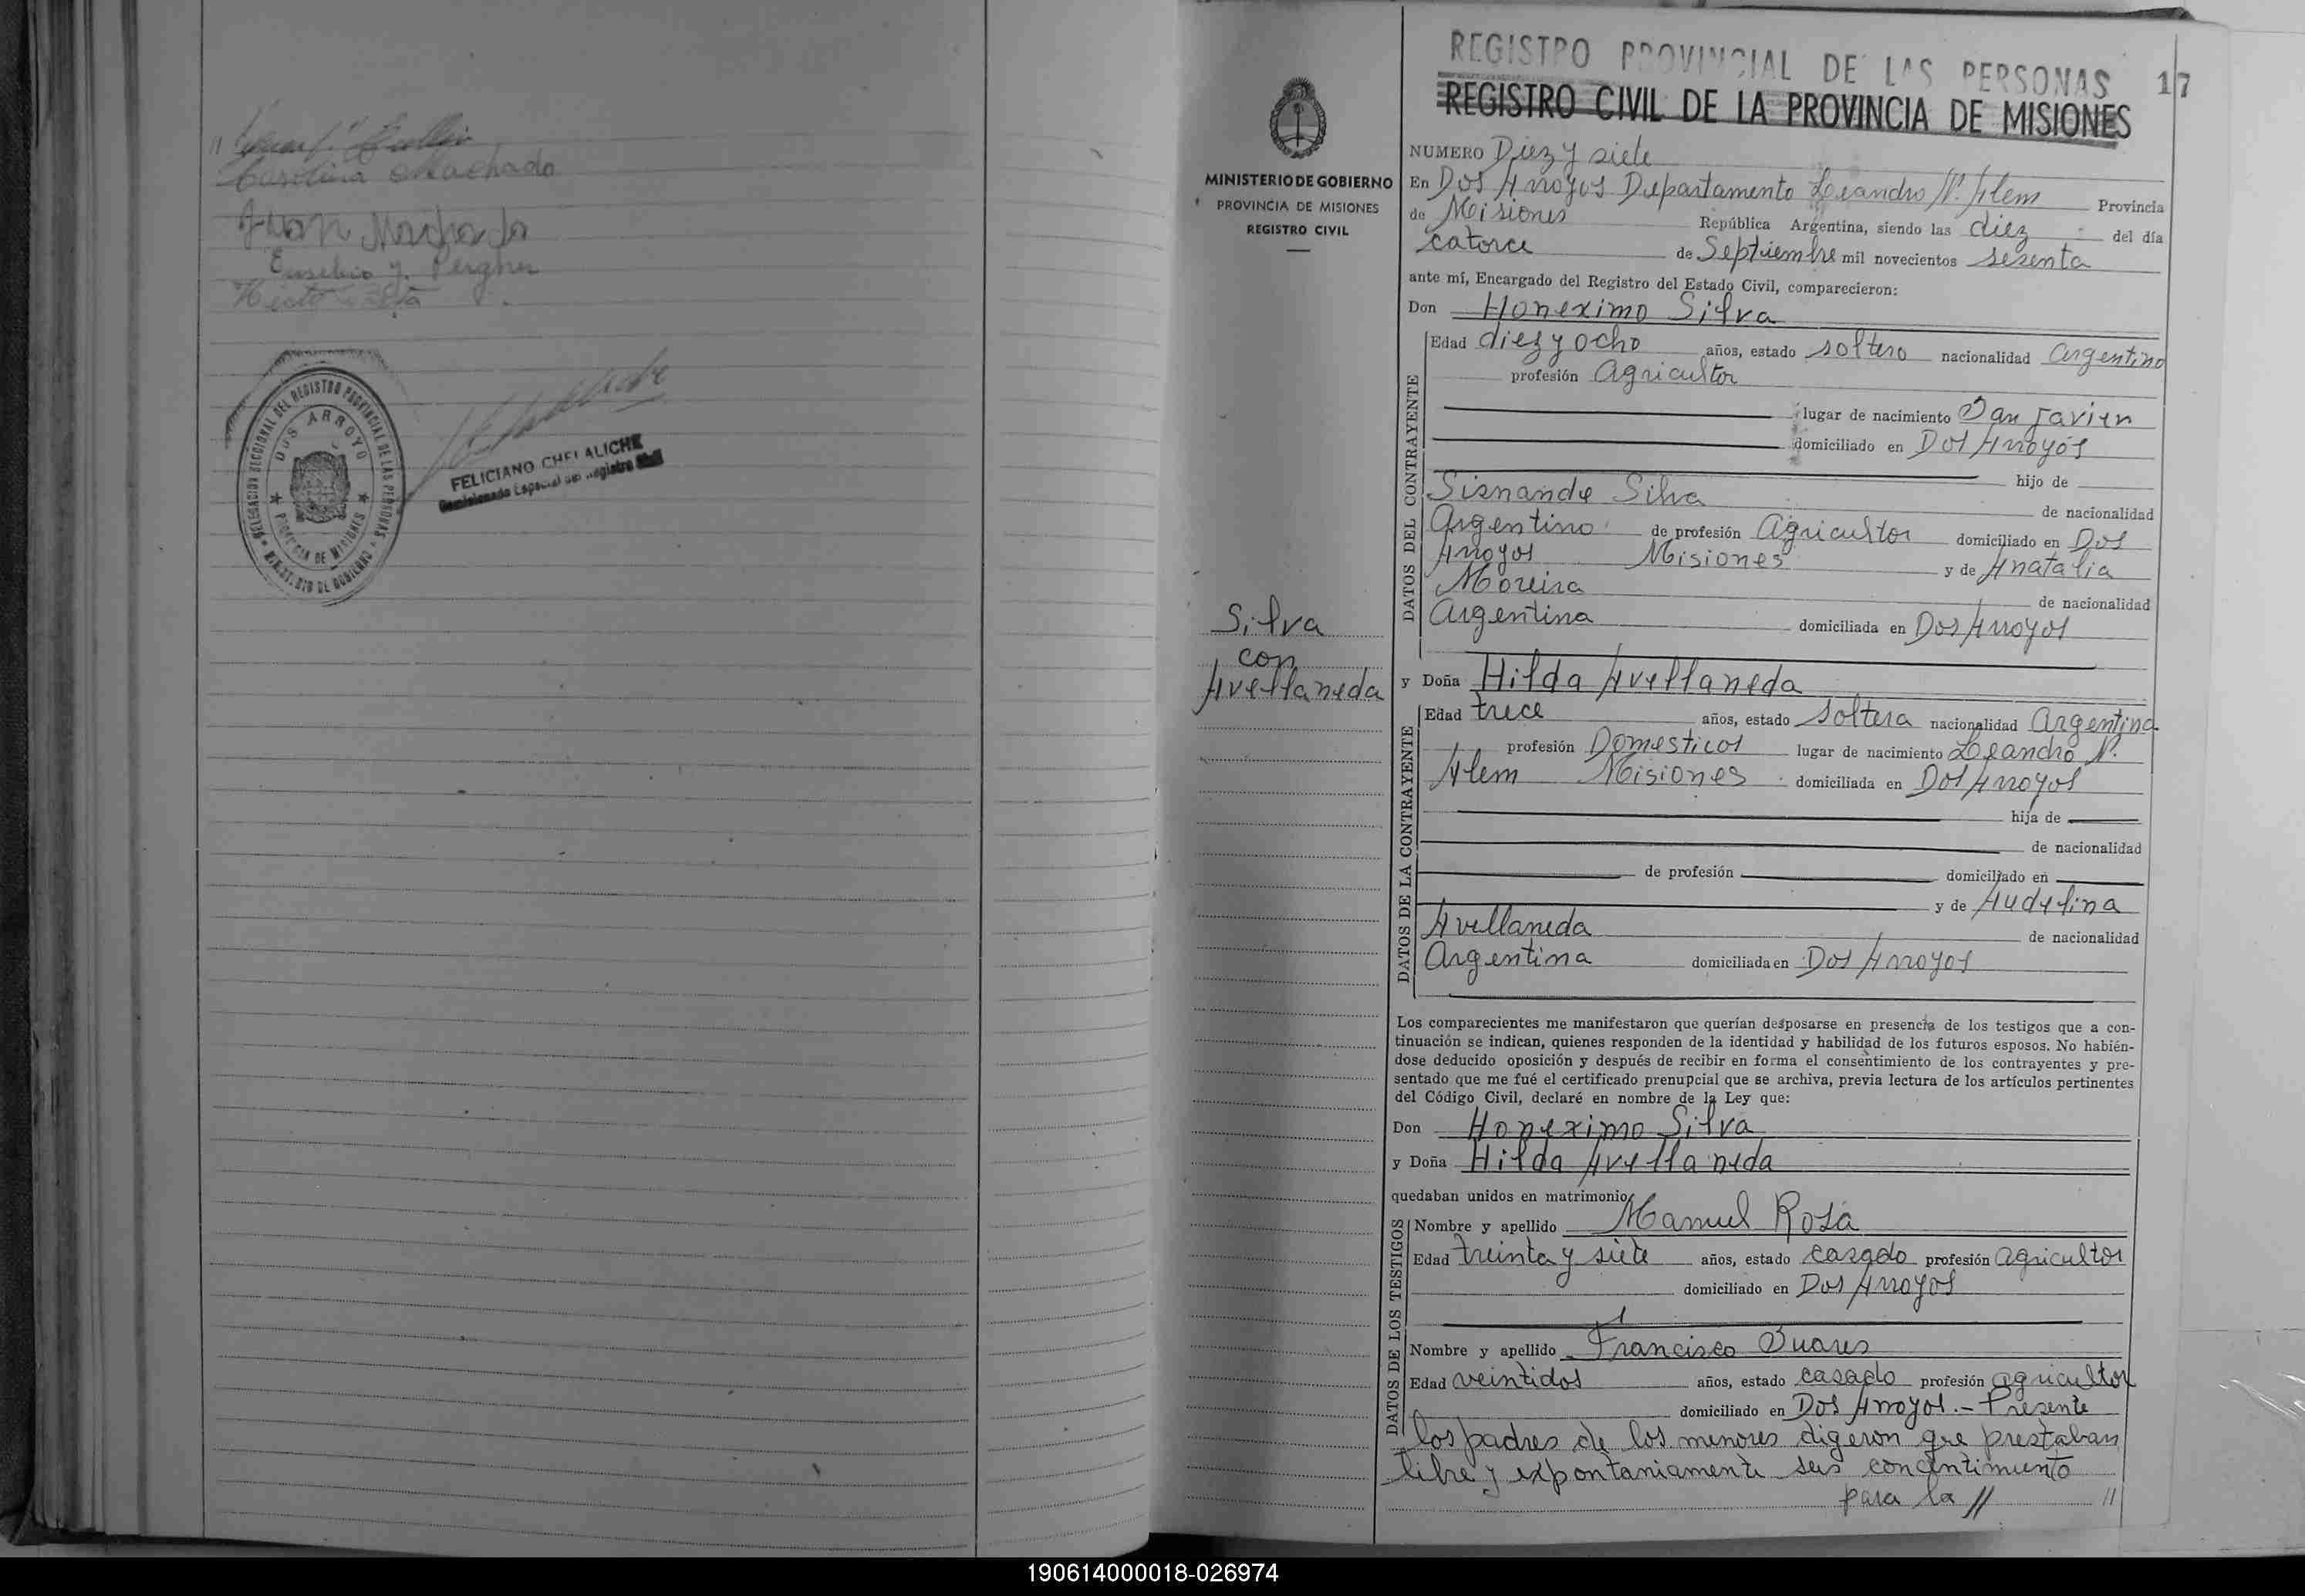 Carolina Machado
Juan Machado
Eusebio J. Pergher
DELEGACION SECCIONAL DEL REGISTRO PROVINCIAL DE LAS PERSONAS
DOS ARROYO
PROVINCIA DE MISIONES
FELICIANO CHELALICHE
Comisionado Especial del Registro Civil
REGISTRO PROVINCIAL DE LAS PERSONAS 17
REGISTRO CIVIL DE LA PROVINCIA DE MISIONES
MINISTERIO DE GOBIERNO
PROVINCIA DE MISIONES
REGISTRO CIVIL
Silva
con
Avellaneda
NUMERO Diez y siete
En Dos Arroyos Departamento Leandro N. Alem Provincia
de Misiones República Argentina, siendo las diez del día
catorce de Septiembre mil novecientos sesenta
ante mí, Encargado del Registro del Estado Civil, comparecieron:
Don Honeximo Silva
DATOS DEL CONTRAYENTE
Edad diez y ocho años, estado soltero nacionalidad argentino
profesión Agricultor
lugar de nacimiento San Javier
domiciliado en Dos Arroyos
hijo de
Sisnande Silva de nacionalidad
Argentino de profesión Agricultor domiciliado en Dos
Arroyos Misiones y de Anatalia
Moreira de nacionalidad
Argentina domiciliada en Dos Arroyos
y Doña Hilda Avellaneda
DATOS DE LA CONTRAYENTE
Edad trece años, estado soltera nacionalidad argentina
profesión Domesticos lugar de nacimiento Leandro N.
Alem Misiones domiciliada en Dos Arroyos
hija de
de nacionalidad
de profesión domiciliado en
y de Audelina
Avellaneda de nacionalidad
Argentina domiciliada en Dos Arroyos
Los comparecientes me manifestaron que querían desposarse en presencia de los testigos que a con-
tinuación se indican, quienes responden de la identidad y habilidad de los futuros esposos. No habién-
dose deducido oposición y después de recibir en forma el consentimiento de los contrayentes y pre-
sentado que me fué el certificado prenupcial que se archiva, previa lectura de los artículos pertinentes
del Código Civil, declaré en nombre de la Ley que:
Don Honeximo Silva
y Doña Hilda Avellaneda
quedaban unidos en matrimonio
DATOS DE LOS TESTIGOS
Nombre y apellido Manuel Rosa
Edad treinta y siete años, estado casado profesión agricultor
domiciliado en Dos Arroyos
Nombre y apellido Francisco Suares
Edad veintidos años, estado casado profesión agricultor
domiciliado en Dos Arroyos.- Presente
los padres de los menores digeron que prestaban
libre y expontaniamente sus concentimiento
para la // //
190614000018-026974